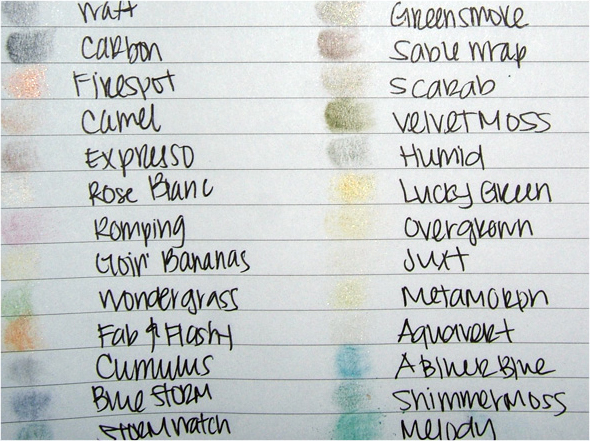 Carbon
Firespot
Camel
Expresso
Rose Blanc
Romping
Goin' Bananas
Wondergrass
Fab & Flashy
Cumulus
Blue Storm
Stormwatch
Greensmoke
Sable Wrap
Scarab
Velvet Moss
Humid
Lucky Green
Overgrown
Juxt
Metamorph
Aquavert
A Bluer Blue
Shimmermoss
Melody